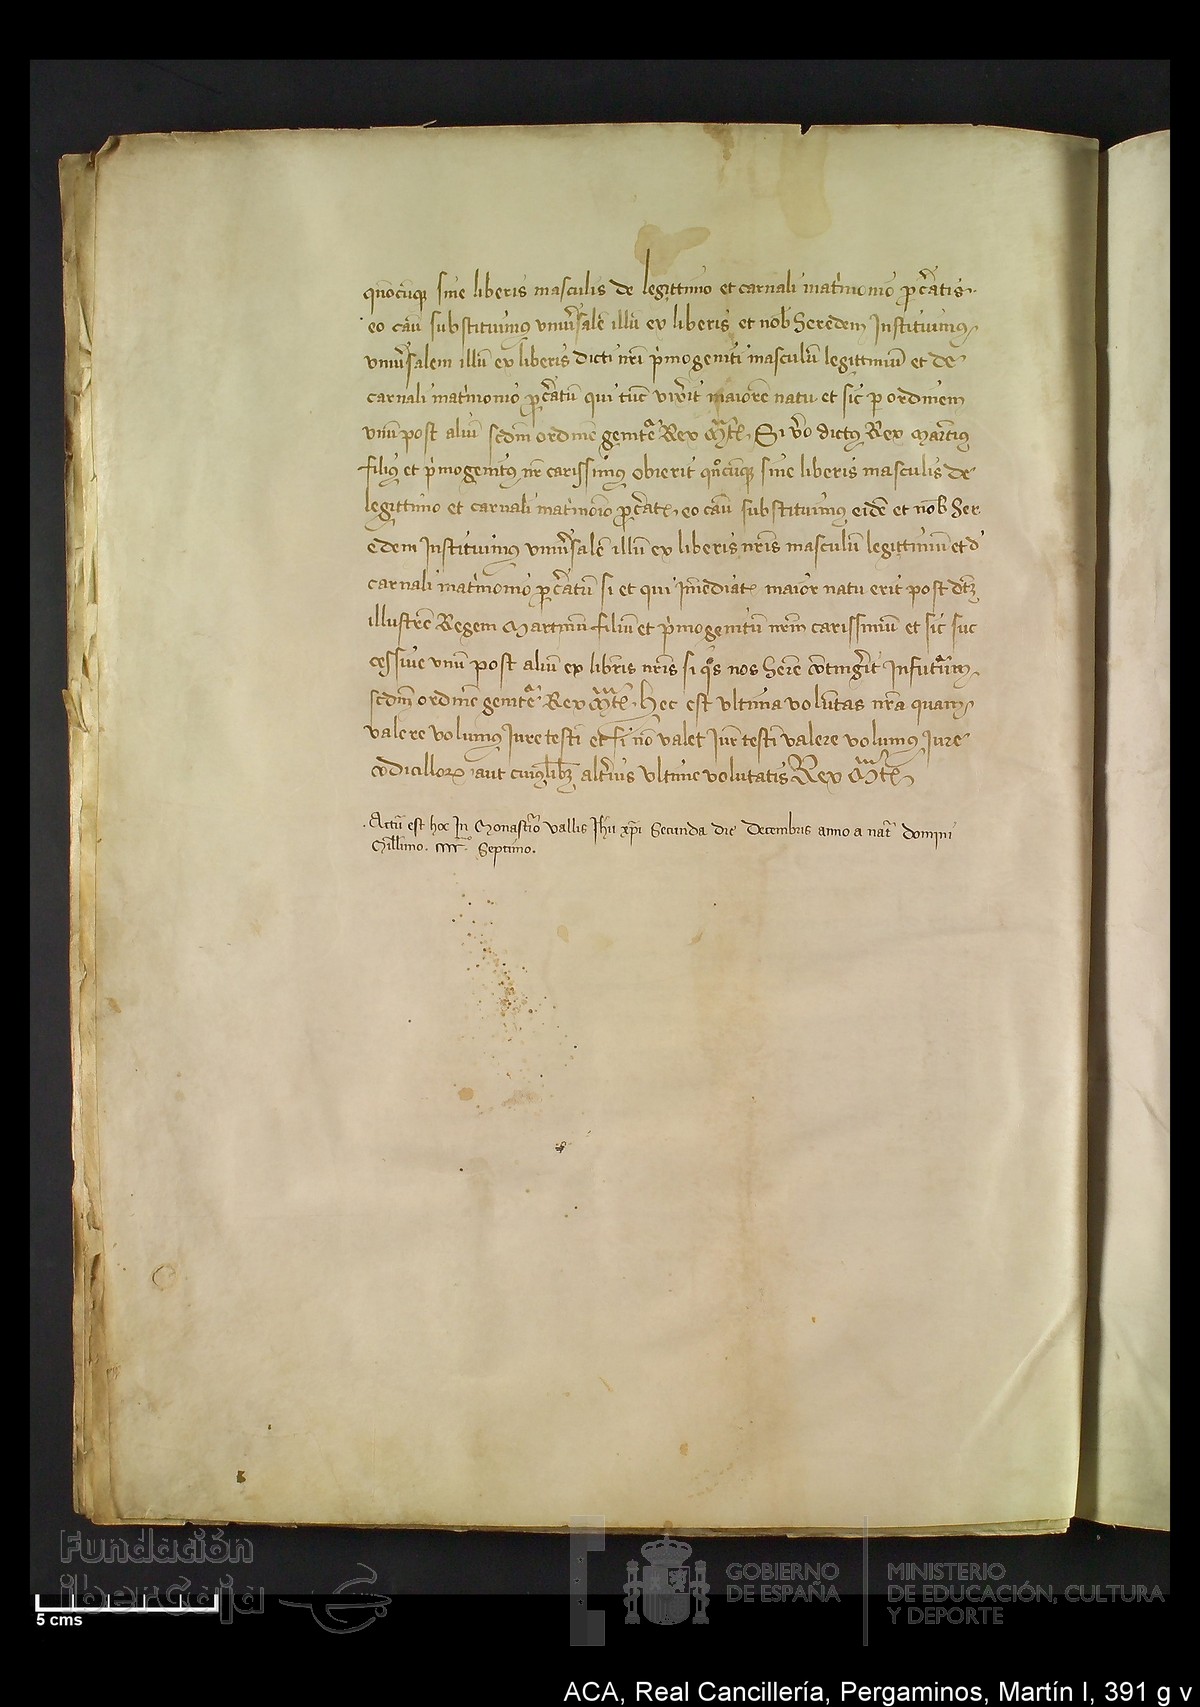 qñocũq̃ sine liberis masculis de legittimo et carnali mat'monio p̱c̃atis.
eo casũ substituimus vniv'salẽ illũ ex liberis et nob' heredem Instituimus
vniv'salem illũ ex liberis dicti nr̃i p'mogeniti masculũ legittimũ et de
carnali mat'monio p̱c̃atũ qui tũc vix'it maiorẽ natu et sic per ordinem
vnũ post aliũ scdm̃ ordinẽ genitẽ Rex M̃t. Si v̊o dictus Rex Martius
filius et p'mogenitus nr̃ carissimus obierit qñocũq̃ sine liberis masculis de
legittimo et carnali mat'monio p̱c̃at, eo casũ substituimus eidẽ et nob' her
edem Instituimus vniv'salẽ illũ ex liberis nr̃is masculũ legittimũ et d'
carnali mat'monio p̱c̃atũ si et qui Im̃ediat maior natu erit post
illustrẽ Regem Martinũ filiũ et p'mogenitũ nr̃m carissimũ et sic suc
cessiue vnũ post aliũ ex libris nr̃is si q̊s nos herẽ cõting'it Infutur̃um
scdm̃ ordinẽ genitẽ Rex M̃t. Hec est vltima voluntas nr̃a quam
valere volumus Jure testi et si nõ valet Jur̃ testi valere volumus Jure
codicillorꝫ aut cuiuslibꝫ alt'ius vltime volũtatis Rex M̃t
Actũ est hoc In Monast'io vallis Jhũ xp̃i Secunda die Decembris anno a nat' domini
Mill'imo. CCCC. Septimo.
Fundación
iberCaja
5 cms
GOBIERNO
DE ESPAÑA
MINISTERIO
DE EDUCACIÓN, CULTURA
Y DEPORTE
ACA, Real Cancillería, Pergaminos, Martín I, 391 g v